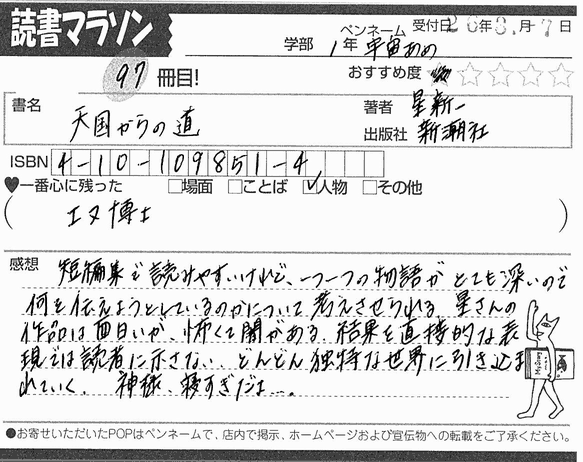 読書マラソン
ペンネーム 受付日 20年8月-7日
学部 1年 宇宙あめ
97 冊目!
おすすめ度 ☆☆☆☆
書名 著者 星新一
天国からの道
出版社 新潮社
ISBN 4-10-109851-4
♥一番心に残った □場面 □ことば ☑人物 □その他
( エヌ博士 )
感想 短編集で読みやすいけれど、一つ一つの物語がとても深いので
何を伝えようとしているのかについて考えさせられる 星さんの
作品は面白いが、怖くて闇がある 結果を直接的な表
現では読者に示さない。どんどん独特な世界に引き込ま
れていく。 神様、寝すぎだよ…。
●お寄せいただいたPOPはペンネームで、店内で掲示、ホームページおよび宣伝物への転載をご了承ください。